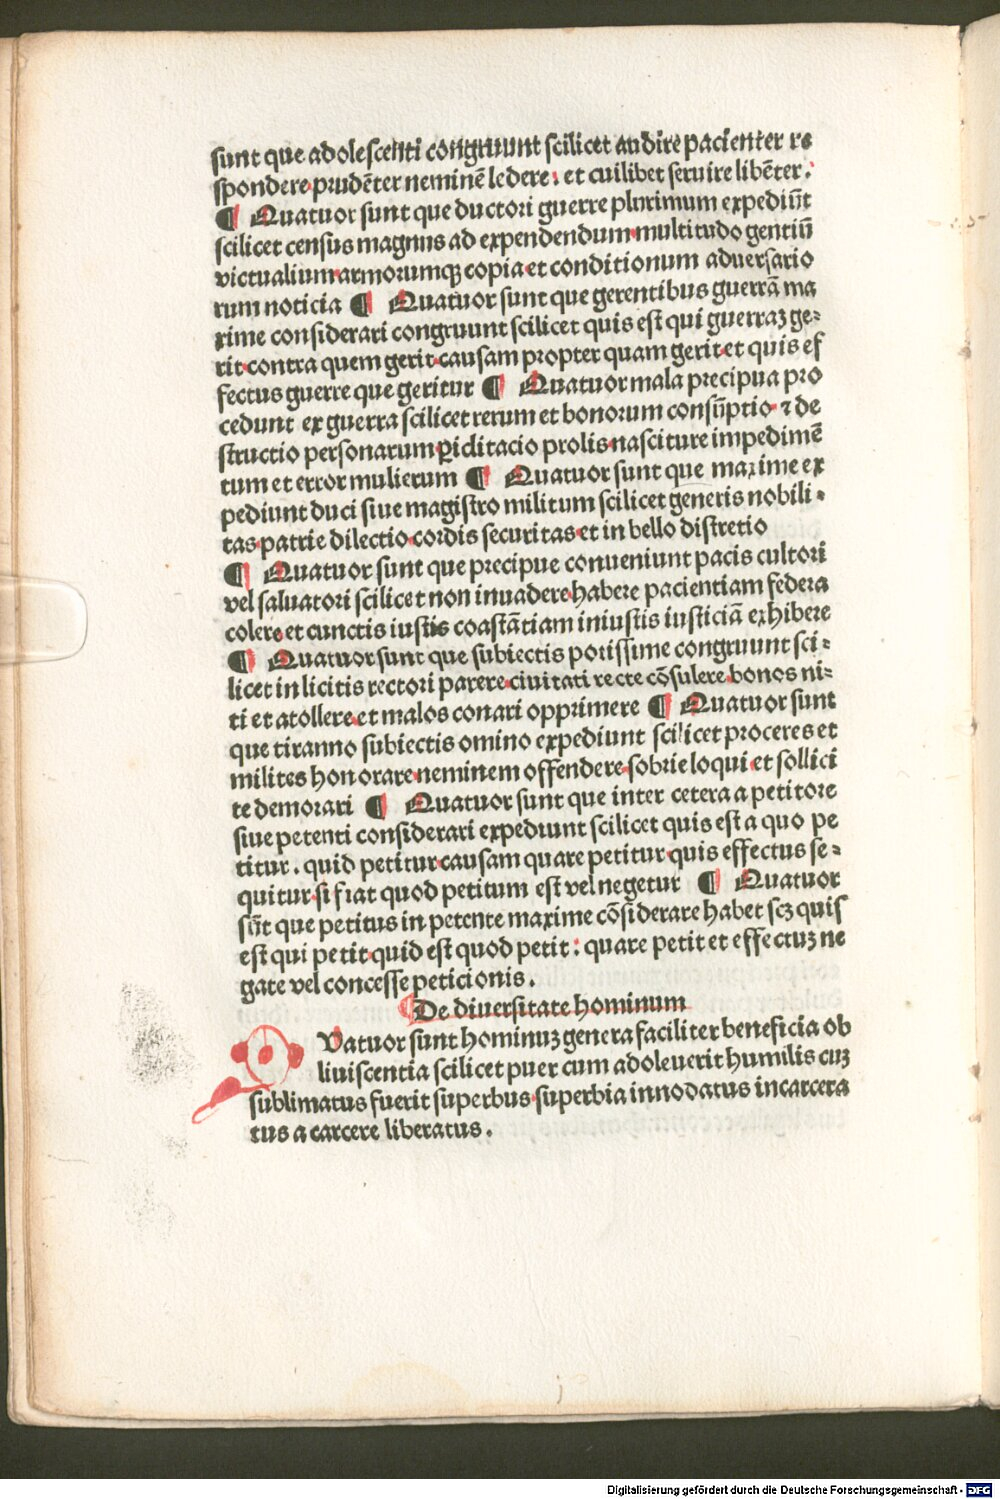 sunt que adolescenti congruunt scilicet audire pacienter re
spondere prudēter neminē ledere. et cuilibet seruire libēter.
¶ Quatuor sunt que ductori guerre plurimum expediūt
scilicet census magnus ad expendendum multitudo gentiū
victualium armorumqꝫ copia et conditionum aduersario
rum noticia ¶ Quatuor sunt que gerentibus guerrā ma
xime considerari congruunt scilicet quis est qui guerraꝫ ge⸗
rit contra quem gerit causam propter quam gerit et quis ef
fectus guerre que geritur ¶ Quatuor mala precipua pro
cedunt ex guerra scilicet rerum et bonorum consūptio ⁊ de
structio personarum ꝑiclitacio prolis nasciture impedimē
tum et error mulierum ¶ Quatuor sunt que maxime ex
pediunt duci siue magistro militum scilicet generis nobili⸗
tas patrie dilectio cordis securitas et in bello distretio
¶ Quatuor sunt que precipue conueniunt pacis cultori
vel saluatori scilicet non inuadere habere pacientiam federa
colere et cunctis iustis coastātiam iniustis iusticiā exhibere
¶ Quatuor sunt que subiectis potissime congruunt sci⸗
licet in licitis rectori parere ciuitati recte cōsulere bonos ni⸗
ti et atollere et malos conari opprimere ¶ Quatuor sunt
que tiranno subiectis omino expediunt scilicet proceres et
milites honorare neminem offendere sobrie loqui et sollici
te demorari ¶ Quatuor sunt que inter cetera a petitore
siue petenti considerari expediunt scilicet quis est a quo pe
titur. quid petitur causam quare petitur quis effectus se⸗
quitur si fiat quod petitum est vel negetur ¶ Quatuor
sūt que petitus in petente maxime cōsiderare habet scꝫ quis
est qui petit quid est quod petit: quare petit et effectuꝫ ne
gate vel concesse peticionis.
¶ De diuersitate hominum
Quatuor sunt hominuꝫ genera faciliter beneficia ob
liuiscentia scilicet puer cum adoleuerit humilis cuꝫ
sublimatus fuerit superbus superbia innodatus incarcera
tus a carcere liberatus.
Digitalisierung gefördert durch die Deutsche Forschungsgemeinschaft - DFG